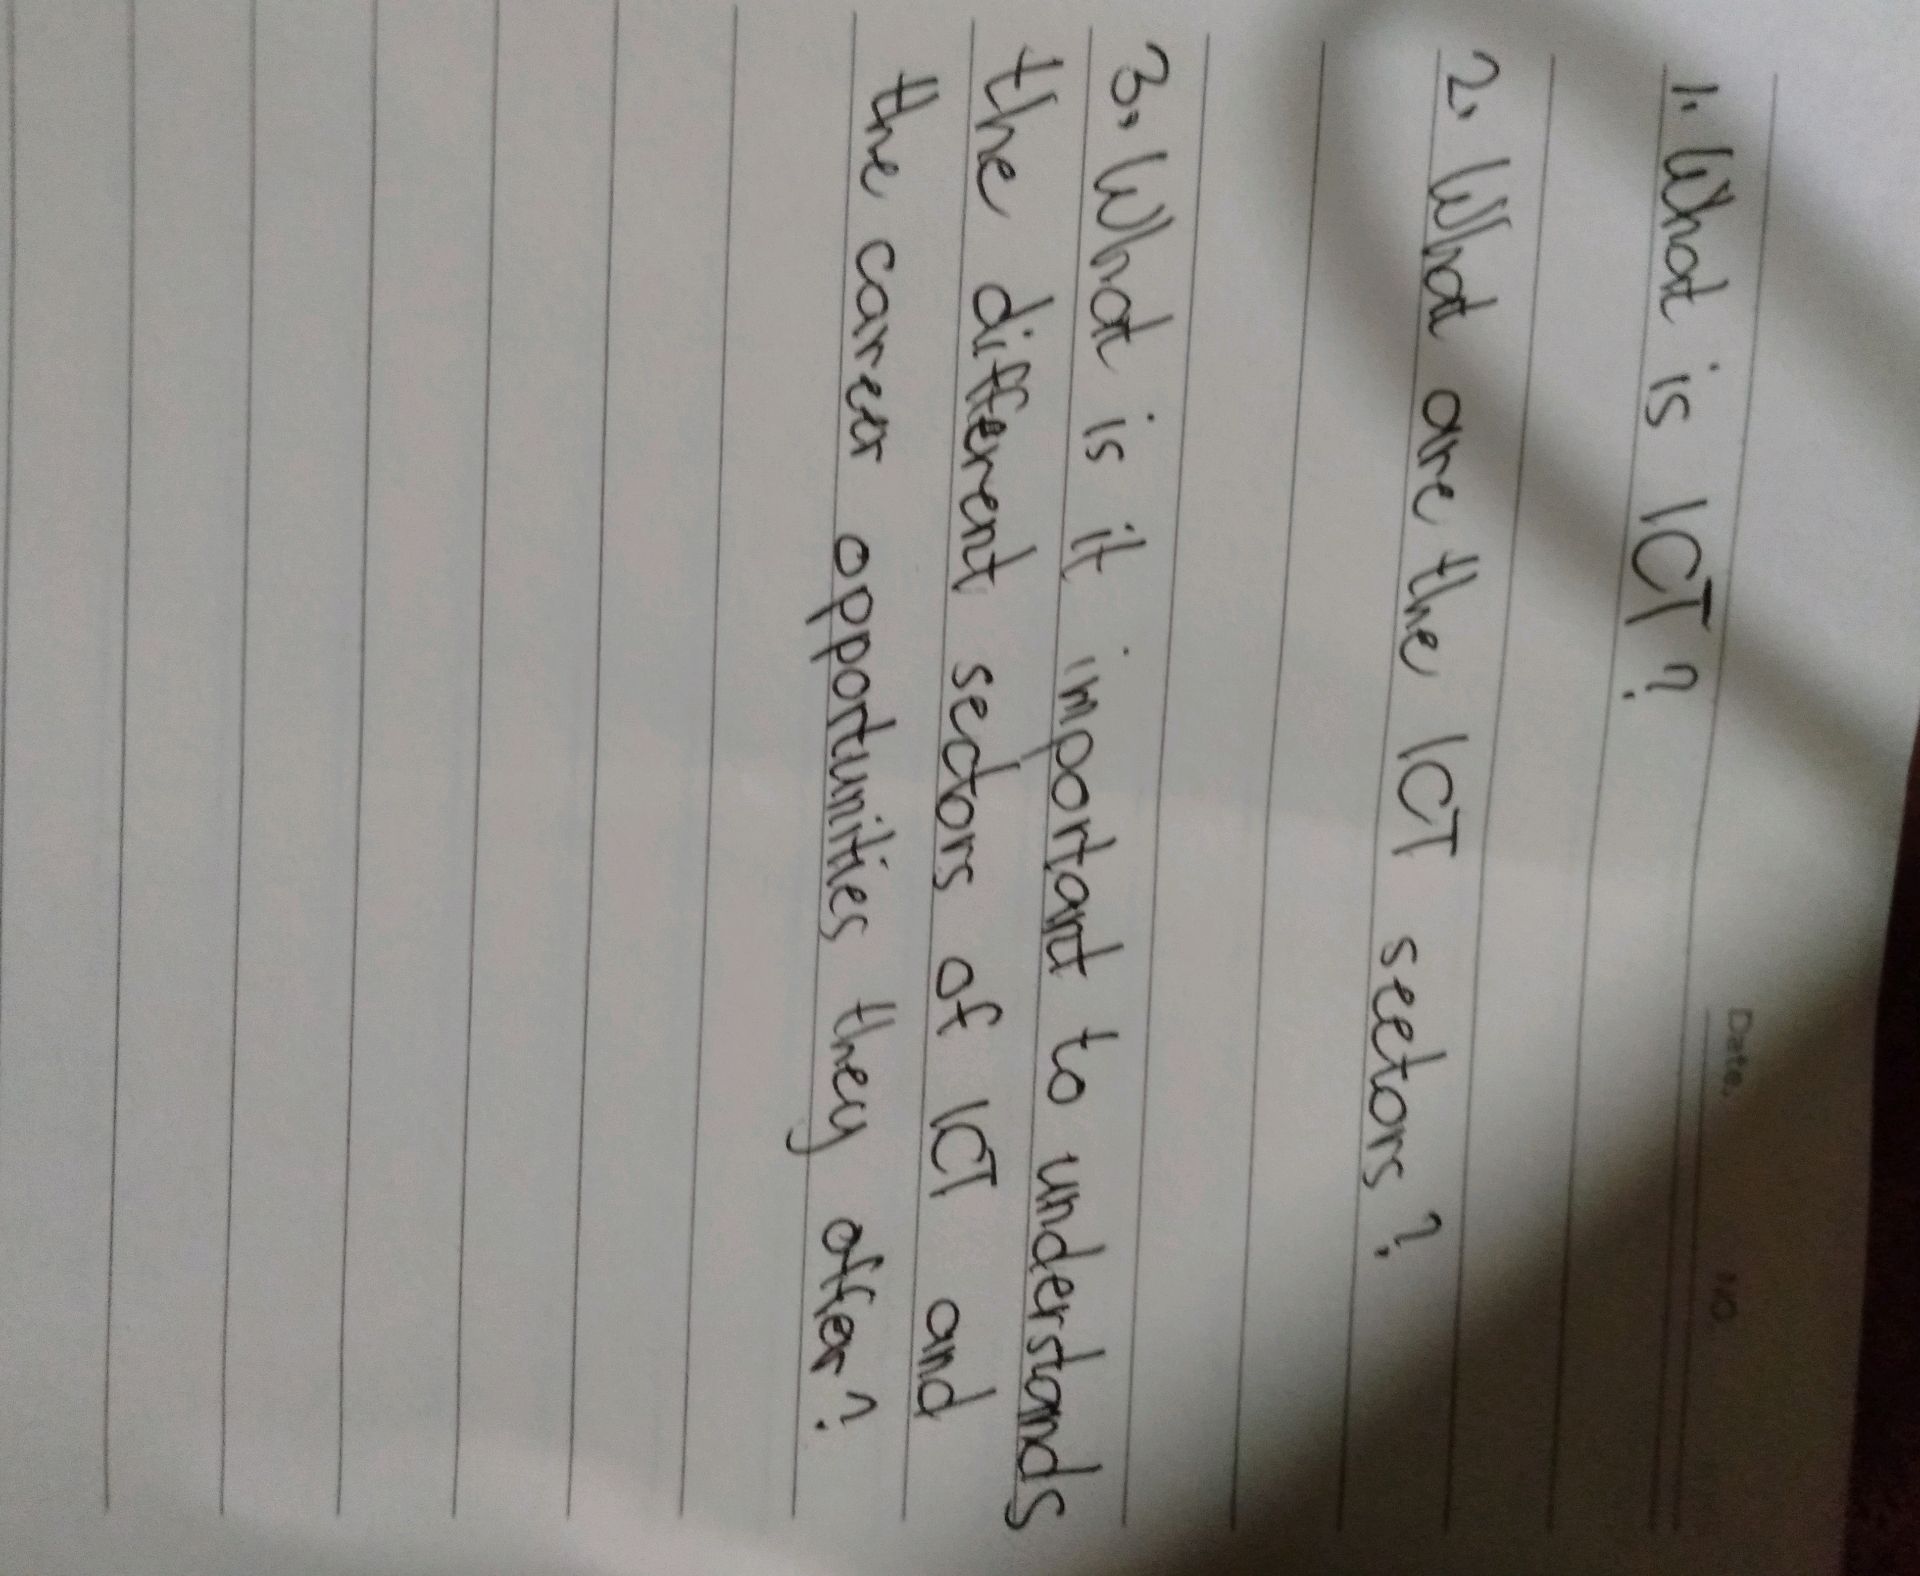 Date.
No
1. What is ICT?
2. What are the ICT sectors?
3. What is it important to understands
the different sectors of ICT and
the career opportunities they offer?